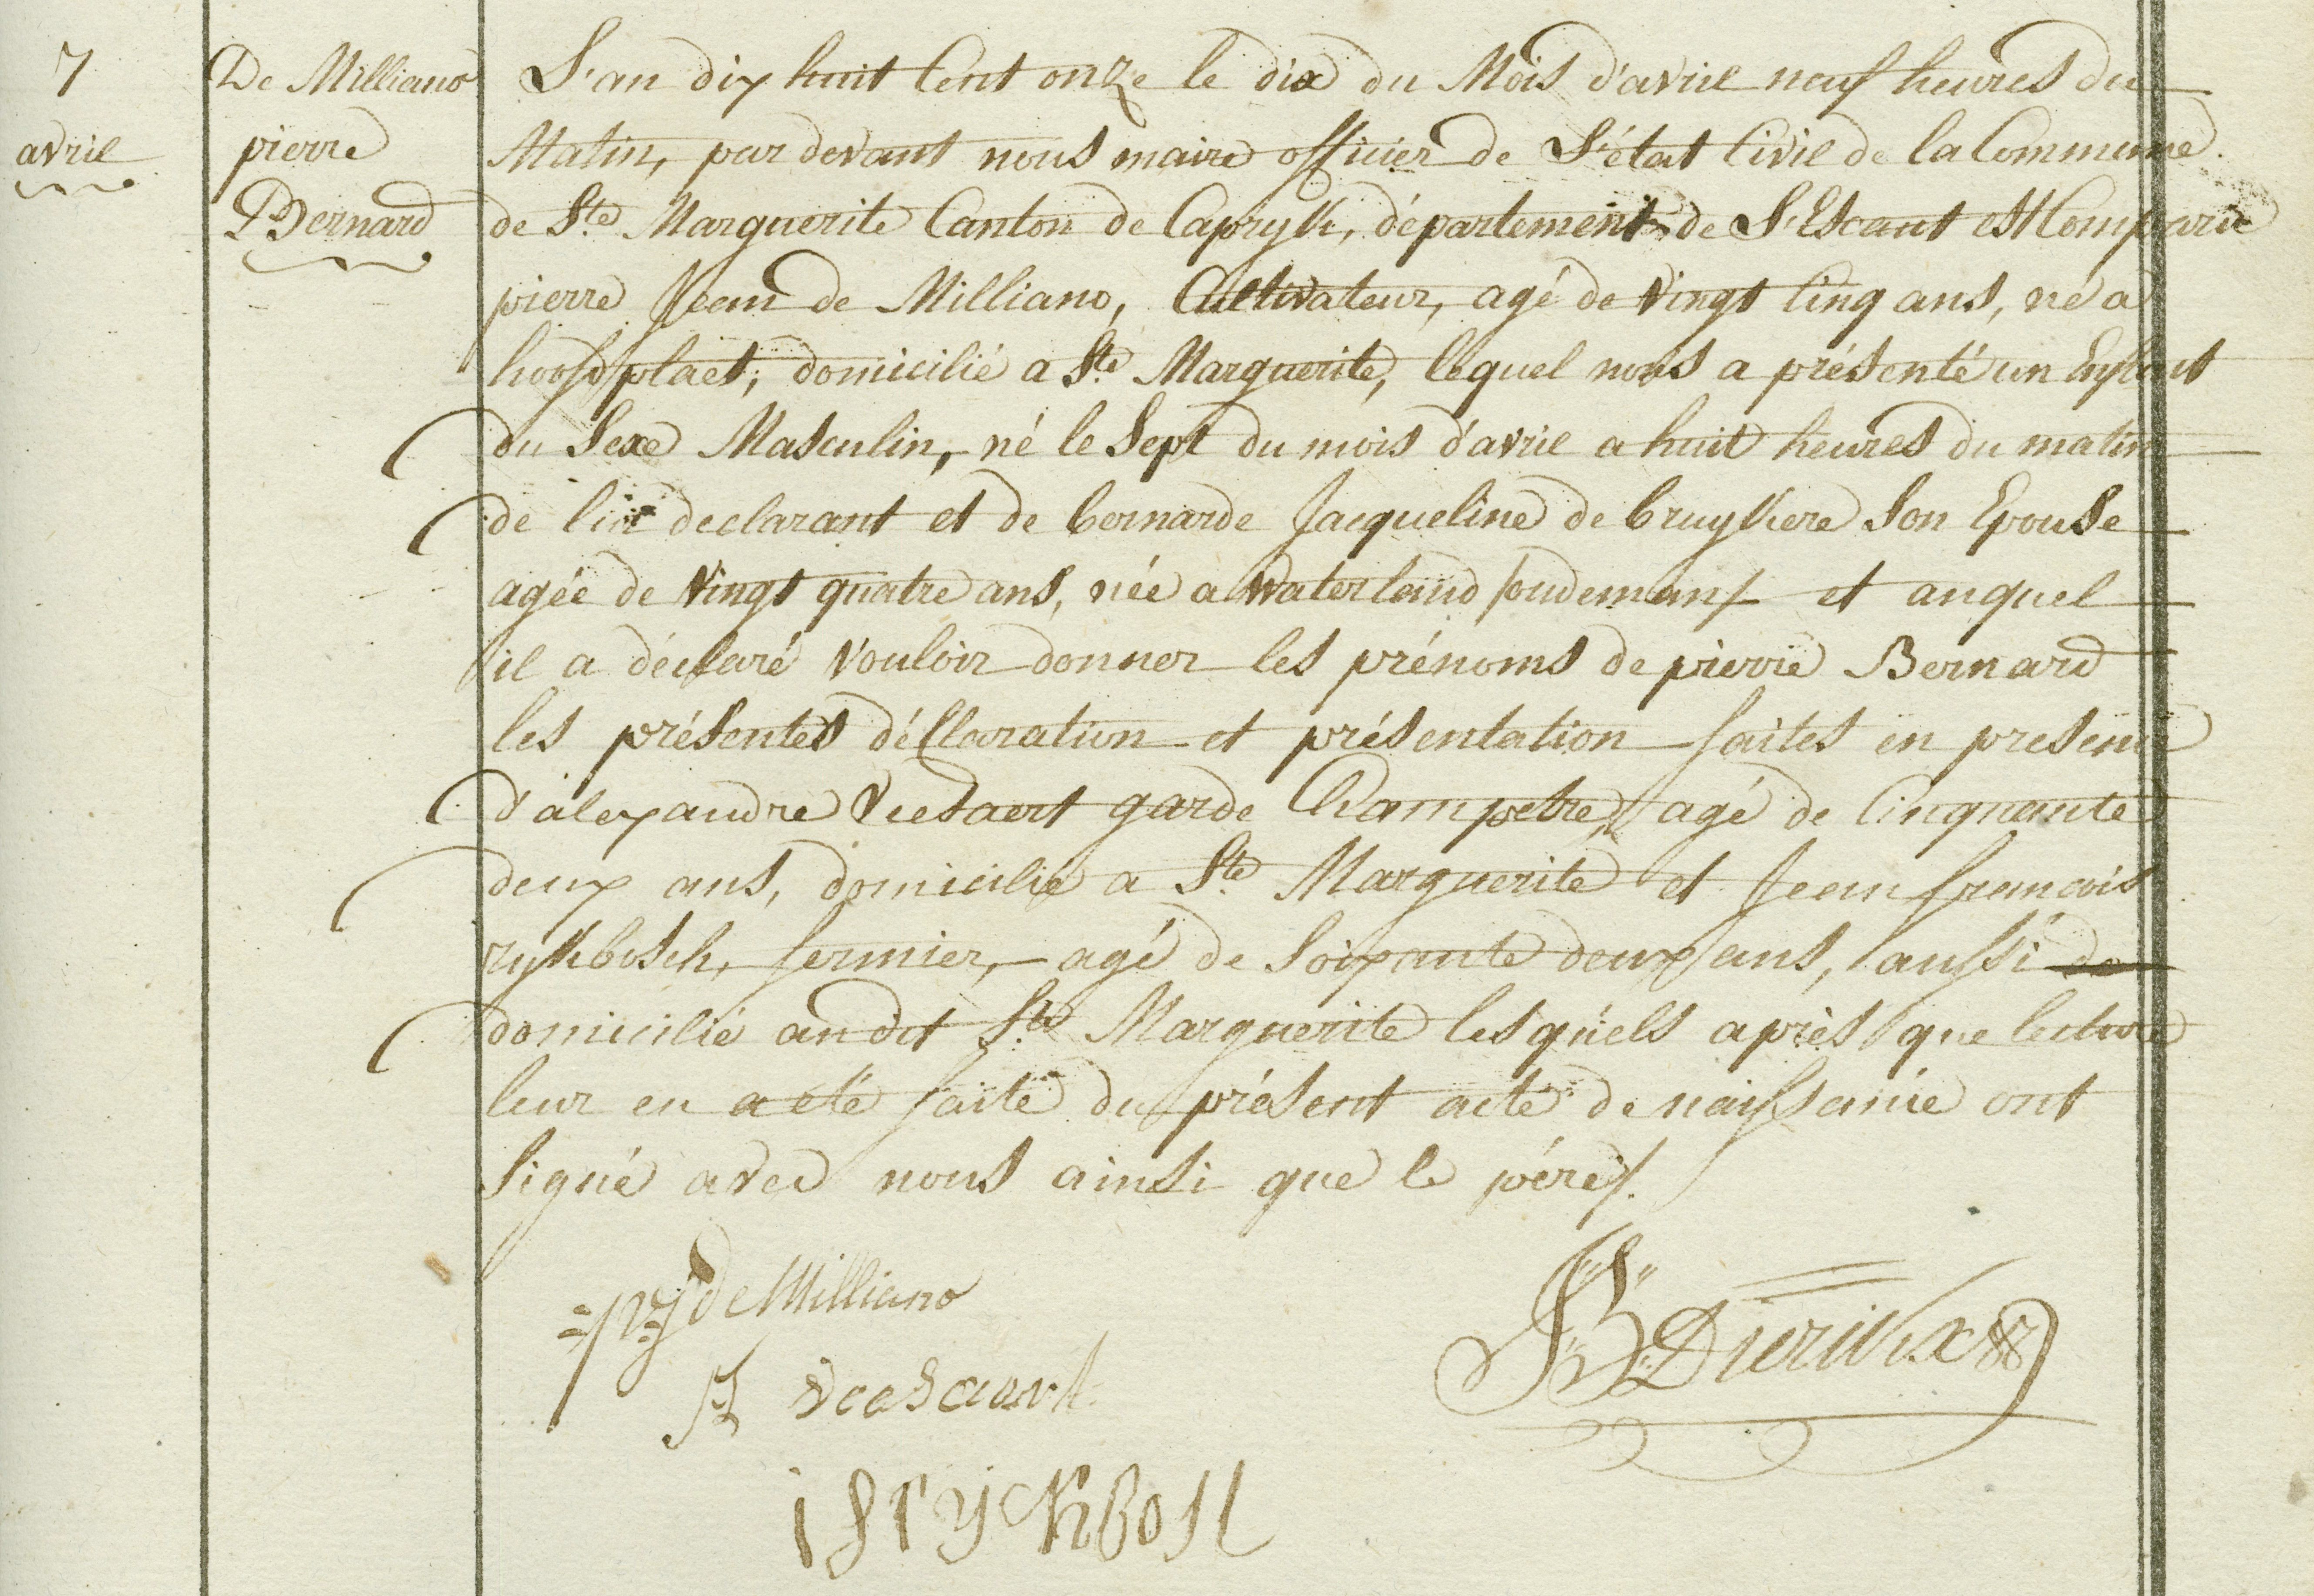 7
avril
De Milliano
pierre
Bernard
L'an dix huit Cent onze le dix du Mois d'avril neuf heures du
Matin, par devant nous maire officier de L'état Civil de la Commune
de Ste Marguerite Canton de Capryk, département de L'Escaut est Comparu
pierre Jean de Milliano, Cultivateur, agé de Vingt Cinq ans, né a
hoofdplaet, domicilié a Ste Marguerite, lequel nous a présenté un Enfant
du Sexe Masculin, né le Sept du mois d'avril a huit heures du matin
de lui declarant et de bernarde Jacqueline de bruykere Son Epouse
agée de Vingt quatre ans, née a Waterland oudeman et auquel
il a déclaré Vouloir donner les prénoms de pierre Bernard
les présentes déclaration et présentation faites en presence
d'alexandre Veesaert garde Champetre, agé de Cinquante
deux ans, domicilié a Ste Marguerite et Jean francois
rykbosch, fermier, agé de Soixante deux ans, aussi do
domicilié au dit Ste Marguerite lesquels après que lecture
leur en a été faite du présent acte de naissance ont
Signé avec nous ainsi que le pére
pj de Milliano
Veesaert
JB Dierickx
ryckbos